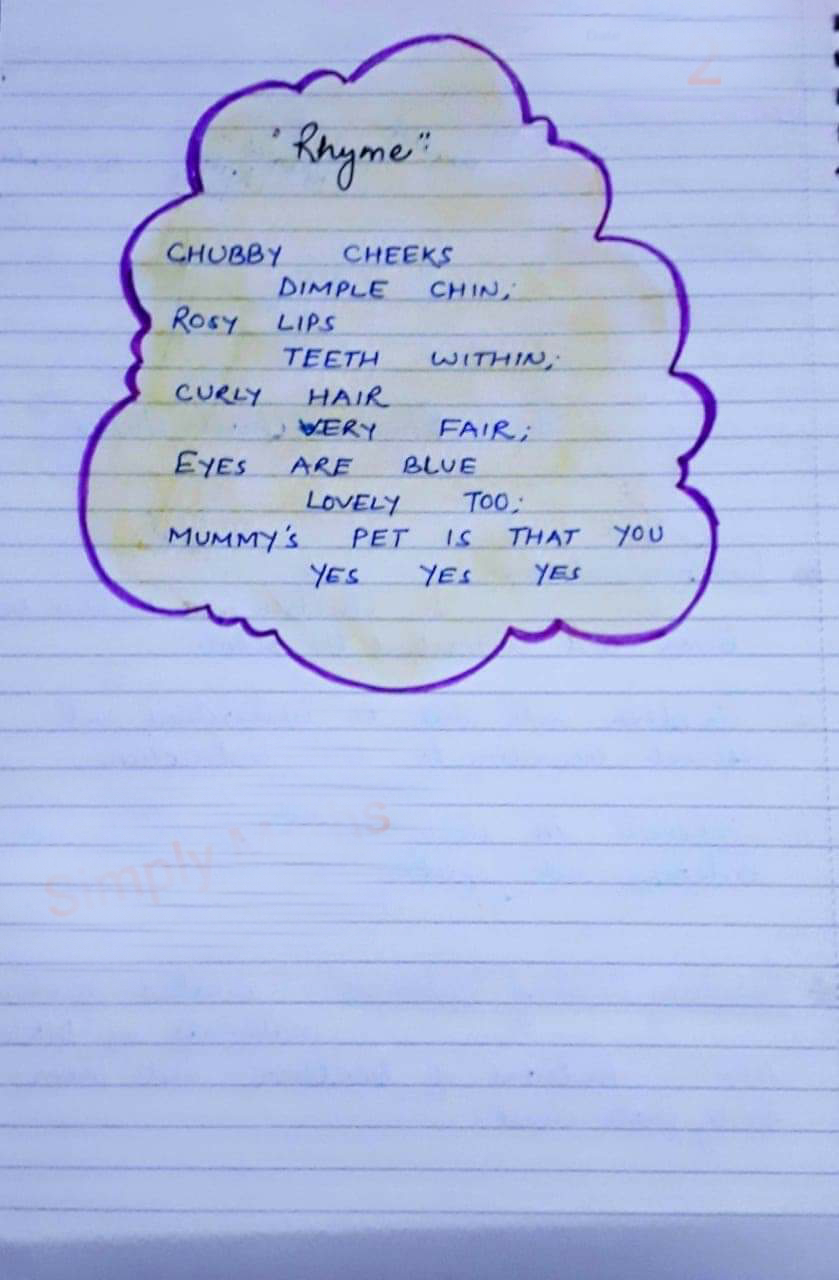 "Rhyme"
CHUBBY CHEEKS
DIMPLE CHIN;
ROSY LIPS
TEETH WITHIN;
CURLY HAIR
VERY FAIR;
EYES ARE BLUE
LOVELY TOO;
MUMMY'S PET IS THAT YOU
YES YES YES
Simply